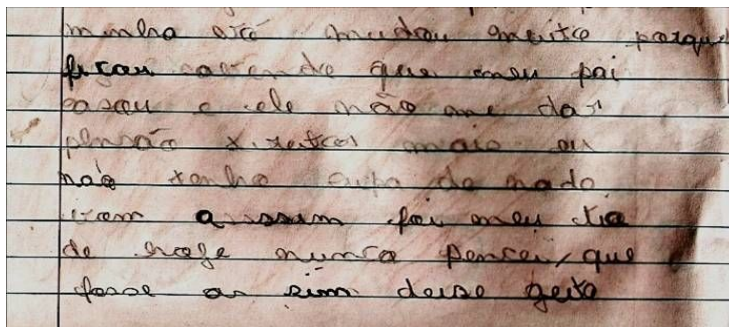 minha avó mudou muito porque
ficou sabendo que meu pai
casou e ele não me das
pensão mais eu
não tenho culpa de nada
bom assim foi meu dia
de hoge nunca pencei, que
fosse as sim desse geito